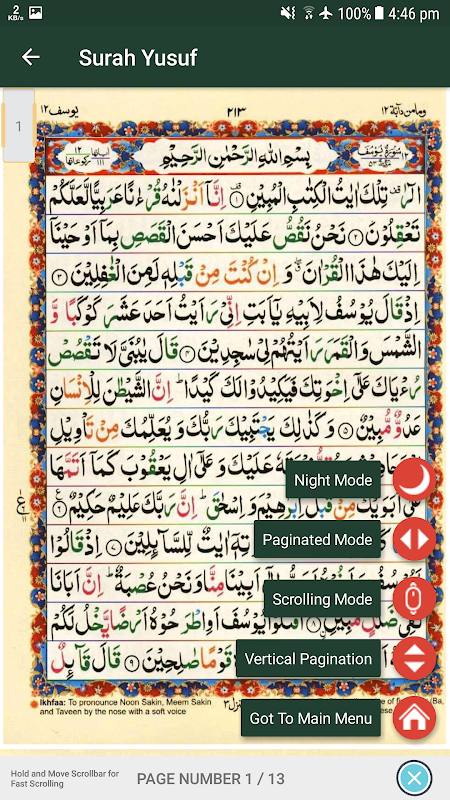 2
KB/s
100% 4:46 pm
Surah Yusuf
1
وما من دآبة ١٢
٢١٣
يوسف ١٢
بِسْمِ اللّٰهِ الرَّحْمٰنِ الرَّحِيْمِ
الٓرٰ تِلْكَ اٰيٰتُ الْكِتٰبِ الْمُبِيْنِ ۝١ اِنَّاۤ اَنْزَلْنٰهُ قُرْءٰنًا عَرَبِيًّا لَّعَلَّكُمْ
تَعْقِلُوْنَ ۝٢ نَحْنُ نَقُصُّ عَلَيْكَ اَحْسَنَ الْقَصَصِ بِمَاۤ اَوْحَيْنَاۤ
اِلَيْكَ هٰذَا الْقُرْاٰنَ وَ اِنْ كُنْتَ مِنْ قَبْلِهٖ لَمِنَ الْغٰفِلِيْنَ ۝٣
اِذْ قَالَ يُوْسُفُ لِاَبِيْهِ يٰۤاَبَتِ اِنِّيْ رَاَيْتُ اَحَدَ عَشَرَ كَوْكَبًا وَّ
الشَّمْسَ وَالْقَمَرَ رَاَيْتُهُمْ لِيْ سٰجِدِيْنَ ۝٤ قَالَ يٰبُنَيَّ لَا تَقْصُصْ
رُءْيَاكَ عَلٰۤى اِخْوَتِكَ فَيَكِيْدُوْا لَكَ كَيْدًا ؕ اِنَّ الشَّيْطٰنَ لِلْاِنْسَانِ
عَدُوٌّ مُّبِيْنٌ ۝٥ وَكَذٰلِكَ يَجْتَبِيْكَ رَبُّكَ وَيُعَلِّمُكَ مِنْ تَاْوِيْلِ
عَلَيْكَ وَعَلٰۤى اٰلِ يَعْقُوْبَ كَمَاۤ اَتَمَّهَا
عَلٰۤى اَبَوَيْكَ مِنْ قَبْلُ اِبْرٰهِيْمَ وَاِسْحٰقَ ؕ اِنَّ رَبَّكَ عَلِيْمٌ حَكِيْمٌ ۝٦
اٰيٰتٌ لِّلسَّآئِلِيْنَ ۝٧ اِذْ قَالُوْا
اَبِيْنَا مِنَّا وَنَحْنُ عُصْبَةٌ ؕ اِنَّ اَبَانَا
لَفِيْ ضَلٰلٍ مُّبِيْنِ ۝٨ اقْتُلُوْا يُوْسُفَ اَوِ اطْرَحُوْهُ اَرْضًا يَّخْلُ لَكُمْ
قَوْمًا صٰلِحِيْنَ ۝٩ قَالَ قَآئِلٌ
Night Mode
Paginated Mode
Scrolling Mode
Vertical Pagination
Got To Main Menu
Ikhfaa: To pronounce Noon Sakin, Meem Sakin
and Taveen by the nose with a soft voice
Hold and Move Scrollbar for
Fast Scrolling
PAGE NUMBER 1 / 13